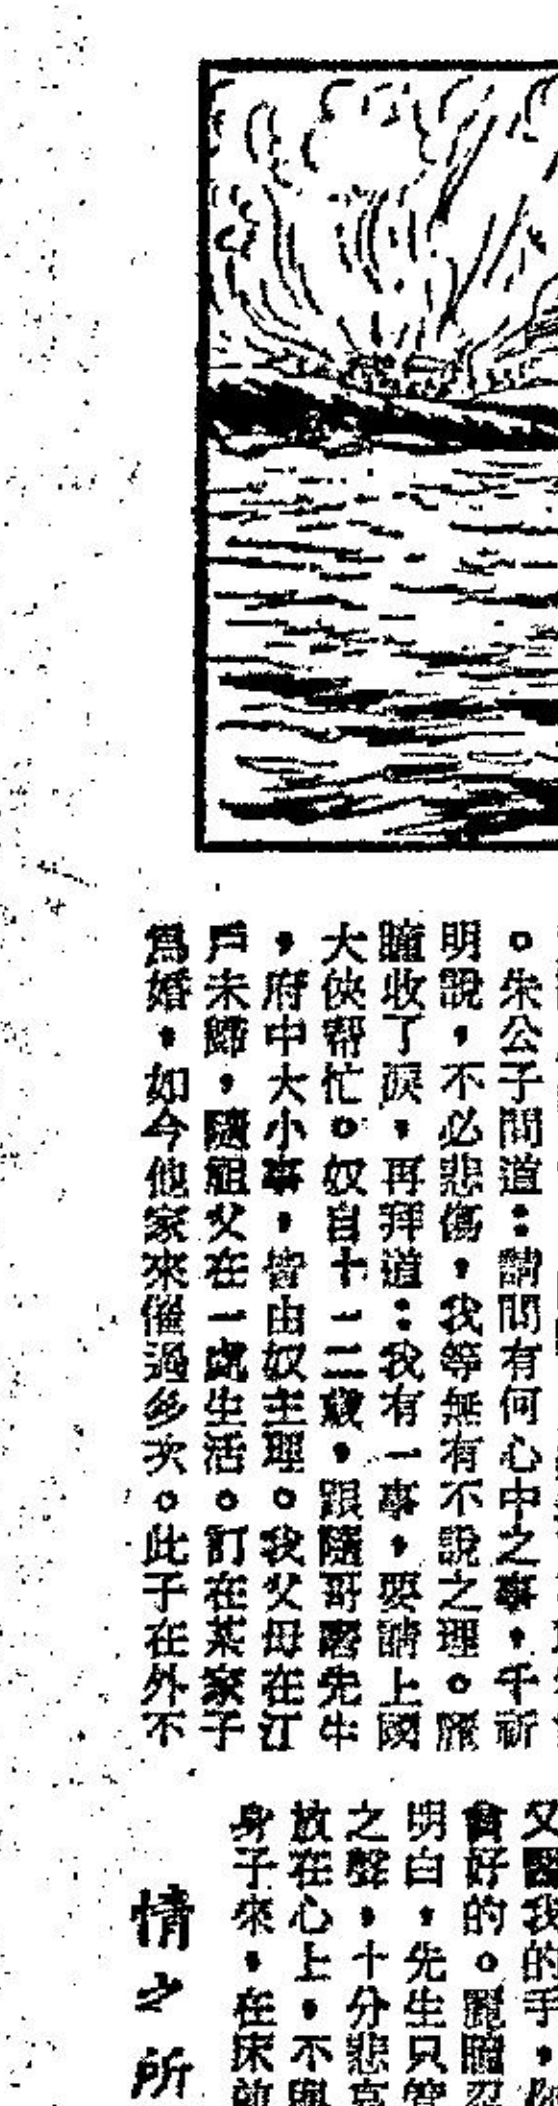 。朱公子問道：請問有何心中之事，千祈
明說，不必悲傷，我等無有不說之理。麗
瞳收了淚，再拜道：我有一事，要請上國
大俠帮忙。奴自十一二歲，跟隨哥
，府中大小事，皆由奴主理。我父母在江
戶未歸，隨祖父在一處生活。訂在某家子
爲婚，如今他家來催過多次。此子在外不
又醫我的手，
會好的。麗瞳忍
明白，先生只管
之聲，十分悲哀
放在心上，不與
身子來，在床前
情之所